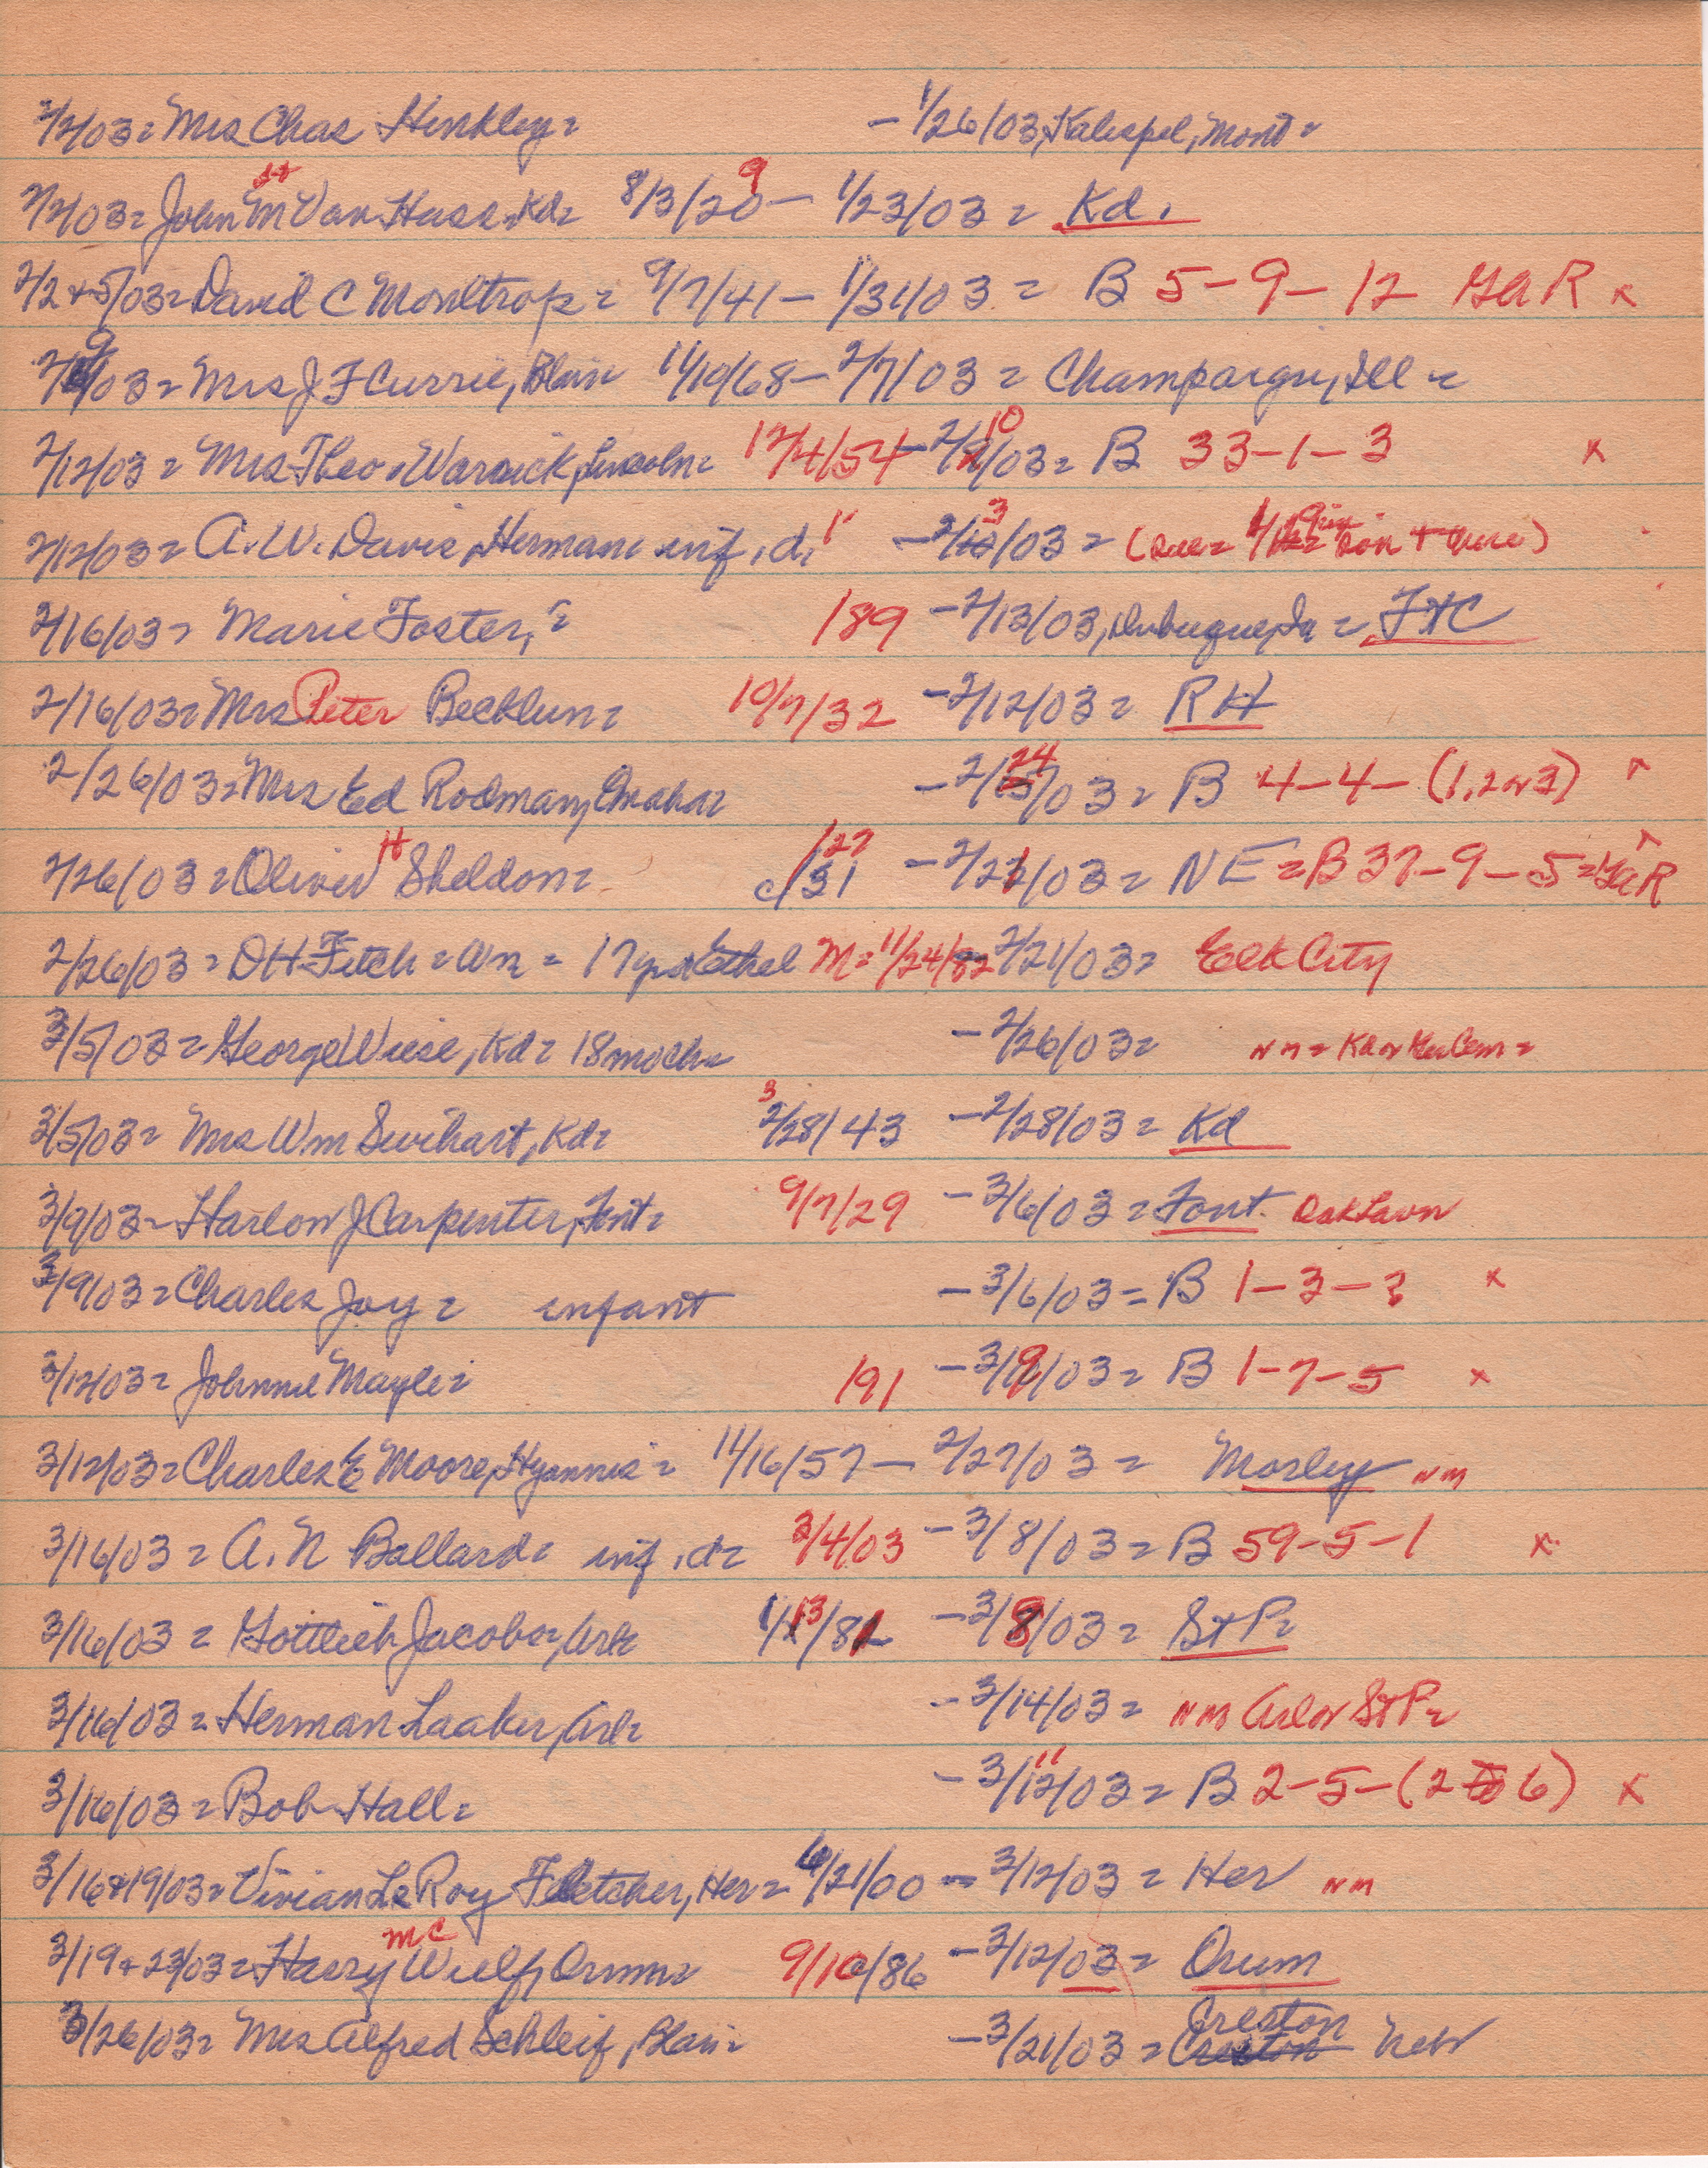 2/2/03= Mrs Chas Hinkley= - 1/26/03, Kalispel, Mont=
2/2/03= John M Van Husen, Kd= 8/3/29 - 1/23/03 = Kd.
2/2+5/03= David C Moneltrop= 9/7/41 - 1/31/03 = B 5-9-12 GAR x
2/9/03= Mrs J F Currie, Blair 11/10/68 - 2/7/03 = Champaign, Ill=
2/12/03= Mrs Theo Warrick, Lincoln= 12/4/54 - 2/10/03= B 33-1-3 x
2/12/03= A. W. Davis, Herman= inf. d. 1 - 2/3/03 =
2/16/03= Marie Foster, = 189 - 2/13/03, Dubuque, Ia = FtC
2/16/03= Mrs Peter Becklun= 10/7/32 - 2/12/03= RH
2/26/03= Mrs Ed Rodman, Omaha= - 2/24/03 = B 4-4-(1,2 or 3) x
2/26/03= Oliver H Sheldon= c/31 /27 - 2/21/03= NE = B 37-9-5= GAR x
2/26/03= DH Fitch = Wm = 17 yrs Ethel M= 11/24/82 2/21/03= Elk City
3/5/03= George Wiese, Kd= 18 mo ch= - 2/26/03= nm = Kd or Cem=
3/5/03= Mrs Wm Swihart, Kd= 3 2/28/43 - 2/28/03= Kd
3/9/03= Harlow J Carpenter, Font= 9/7/29 - 3/6/03= Font. Oak Lawn
3/9/03= Charles Joy= infant - 3/6/03= B 1-3-? x
3/12/03= Johnnie Mayle= 191 - 3/9/03= B 1-7-5 x
3/12/03= Charles E Moore, Hyannis= 11/16/57 - 2/27/03= Mosley nm
3/16/03= A. N Ballard= inf. d= 3/4/03 - 3/8/03= B 59-5-1 x
3/16/03= Gottlieb Jacobs=, Arl= 1/13/81 - 3/8/03= St P=
3/16/03= Herman Laaker, Arl= - 3/14/03= nm Arl or St P=
3/16/03= Bob Hall= - 3/11/03= B 2-5-(2 to 6) x
3/16+19/03= Vivian LeRoy Fletcher, Her= 6/21/00 - 3/12/03= Her nm
3/19+23/03= Harry Mc Wulf, Orum= 9/10/86 - 3/12/03= Orum
3/26/03= Mrs Alfred Schleif, Blair= - 3/21/03= Creston Creston Nebr